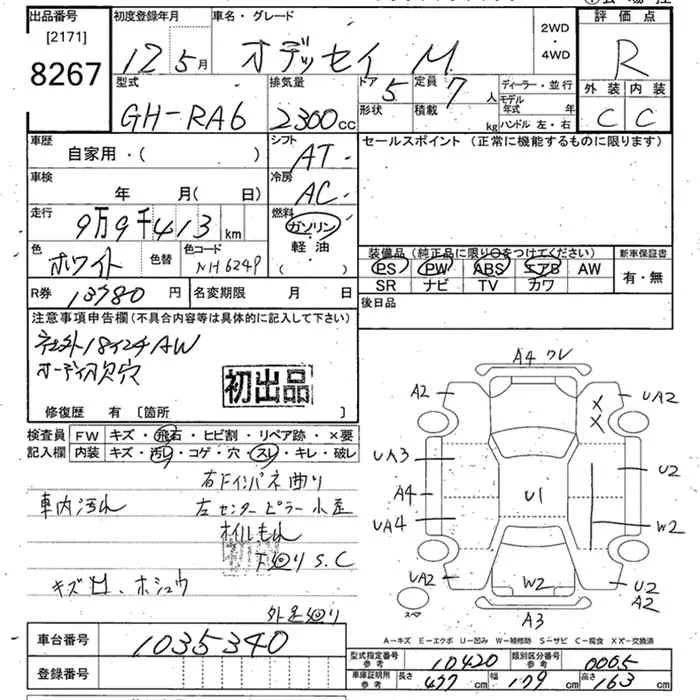 出品番号 初度登録年月 車名・グレード 2WD・4WD 評価点
[2171]
8267 12年5月 オデッセイ M R
型式 排気量 ドア 5 定員 7人 ディーラー・並行 外装 内装
GH-RA6 2300cc 形状 積載 kg モデル年式 年 C C
ハンドル 左・右
車歴 シフト セールスポイント (正常に機能するものに限ります)
自家用・( ) AT
車検 冷房
年 月( 日) AC
走行 燃料
9万9千413km ガソリン
軽油
( )
色 色替 色コード 装備品 (純正品に限り○をつけてください) 新車保証書
ホワイト NH624P PS PW ABS エアB AW 有・無
SR ナビ TV カワ
R券 13780円 名変期限 月 日 後日品
注意事項申告欄 (不具合内容等は具体的に記入して下さい)
社外18インチAW
オーディオ欠穴
初出品
修復歴 有 [箇所 ]
検査員 FW キズ・飛石・ヒビ割・リペア跡・×要
記入欄 内装 キズ・汚レ・コゲ・穴・スレ・キレ・破レ
右Fインパネ曲り
車内汚れ 左センターピラー小歪
オイルもれ
下回りS.C
キズ凹、ホシュウ
外足回り
A4 ワレ
A2 UA2
X
X
UA3 U2
A4 U1
UA4 W2
UA2 W2 U2
A2
スペア A3
A-キズ E-エクボ U-凹み W-補修跡 S-サビ C-腐食 X,X'-交換済
車台番号 1035340
型式指定番号 参考 10420 類別区分番号 参考 0065
登録番号 車庫証明用 参考 長さ 477cm 幅 179cm 高さ 163cm